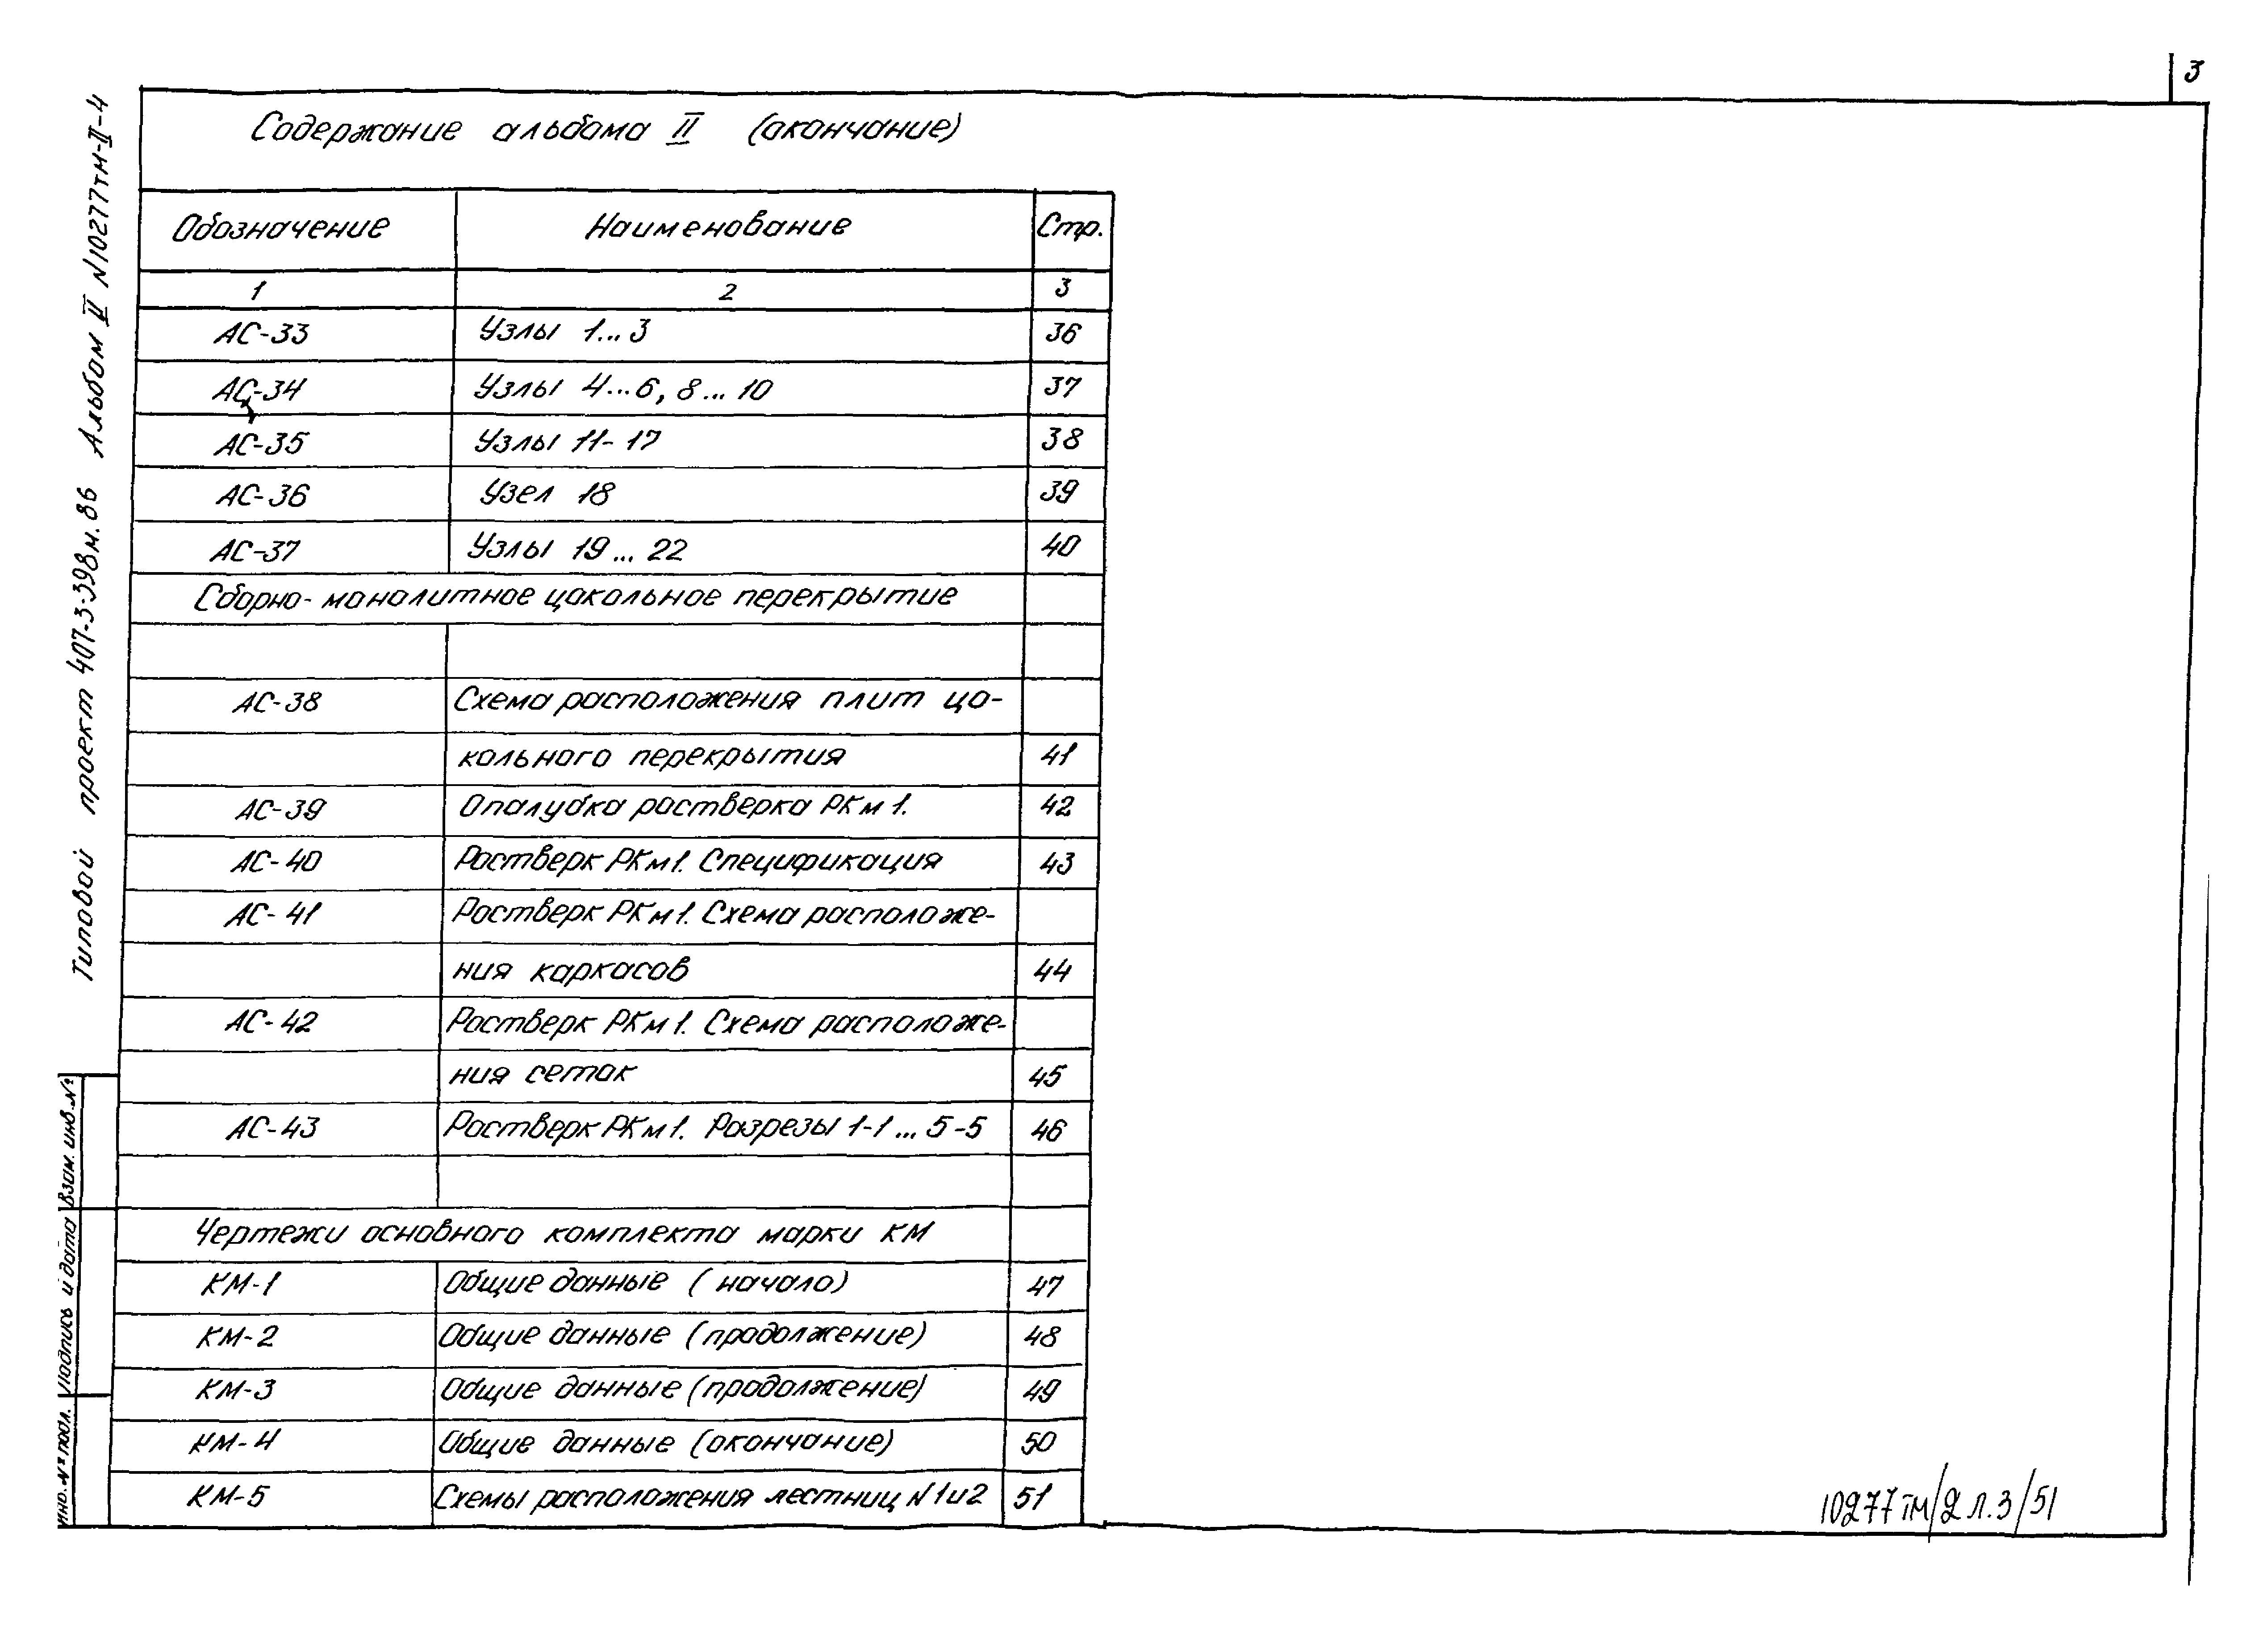 3
Содержание альбома II (окончание)
Обозначение Наименование Стр.
1 2 3
АС-33 Узлы 1...3 36
АС-34 Узлы 4...6, 8...10 37
АС-35 Узлы 11-17 38
АС-36 Узел 18 39
АС-37 Узлы 19...22 40
Сборно-монолитное цокольное перекрытие
АС-38 Схема расположения плит цо-
кольного перекрытия 41
АС-39 Опалубка ростверка РКм1. 42
АС-40 Ростверк РКм1. Спецификация 43
АС-41 Ростверк РКм1. Схема расположе-
ния каркасов 44
АС-42 Ростверк РКм1. Схема расположе-
ния сеток 45
АС-43 Ростверк РКм1. Разрезы 1-1...5-5 46
Чертежи основного комплекта марки КМ
КМ-1 Общие данные (начало) 47
КМ-2 Общие данные (продолжение) 48
КМ-3 Общие данные (продолжение) 49
КМ-4 Общие данные (окончание) 50
КМ-5 Схемы расположения лестниц N1и2 51
Типовой проект 407-3-398м.86 Альбом II N10277тм-II-4
Инв.№ подл. Подпись и дата Взам. инв.№
10277тм/2 л.3/51